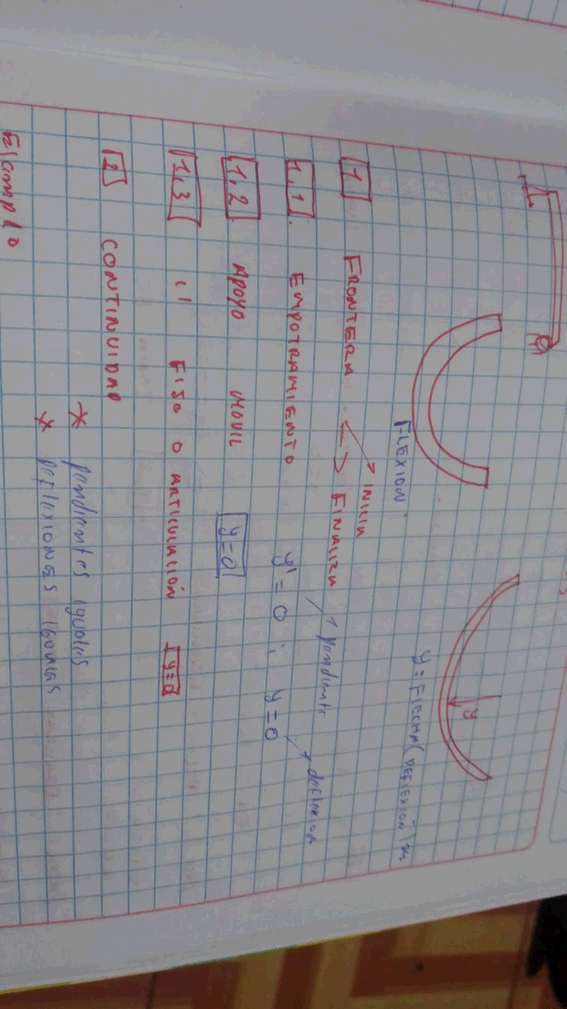 y
FLEXION
y = FLECHA (DEFLEXIÓN) m
1 FRONTERA INICIA
FINALIZA
pendiente
1,1. EMPOTRAMIENTO y' = 0 ; y = 0
deflexion
1,2 APOYO MOVIL y=0
1,3 '' FIJO O ARTICULACIÓN y=0
2 CONTINUIDAD
* pendientes iguales
* DEFLEXIONES IGUALES
Ejemplo